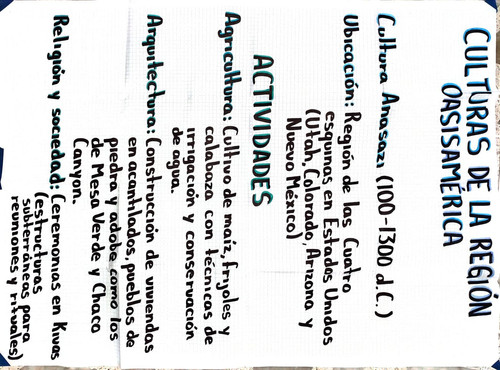 CULTURAS DE LA REGIÓN
OASISAMÉRICA
Cultura Anasazi (100-1300 d.C.)
Ubicación: Región de las Cuatro
esquinas en Estados Unidos
(Utah, Colorado, Arizona y
Nuevo México)
ACTIVIDADES
Agricultura: Cultivo de maíz, frijoles y
calabaza con técnicas de
irrigación y conservación
de agua.
Arquitectura: Construcción de viviendas
en acantilados, pueblos de
piedra y adobe como los
de Mesa Verde y Chaco
Canyon.
Religión y sociedad: Ceremonias en Kivas
(estructuras
subterráneas para
reuniones y rituales)